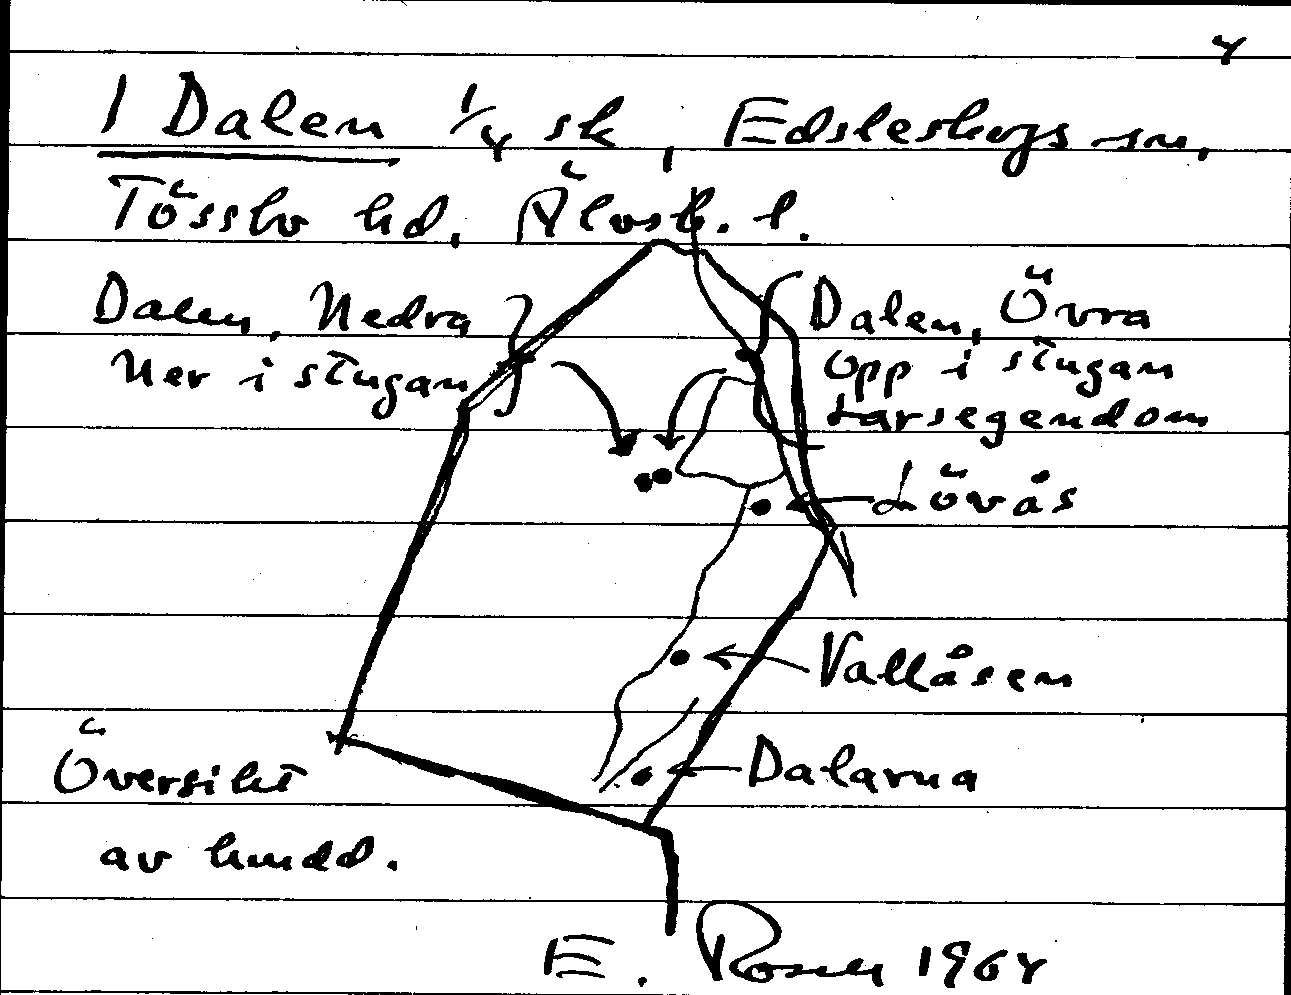 4
1 Dalen 1/4 sk, Edsleskogs sn,
Tössbo hd. Älvsb. l.
Dalen, Nedra
Ner i stugan
Dalen, Övra
Opp i stugan
Larsegendom
Lövås
Vallåsen
Dalarna
Översikt
av
E. Rosen 1964